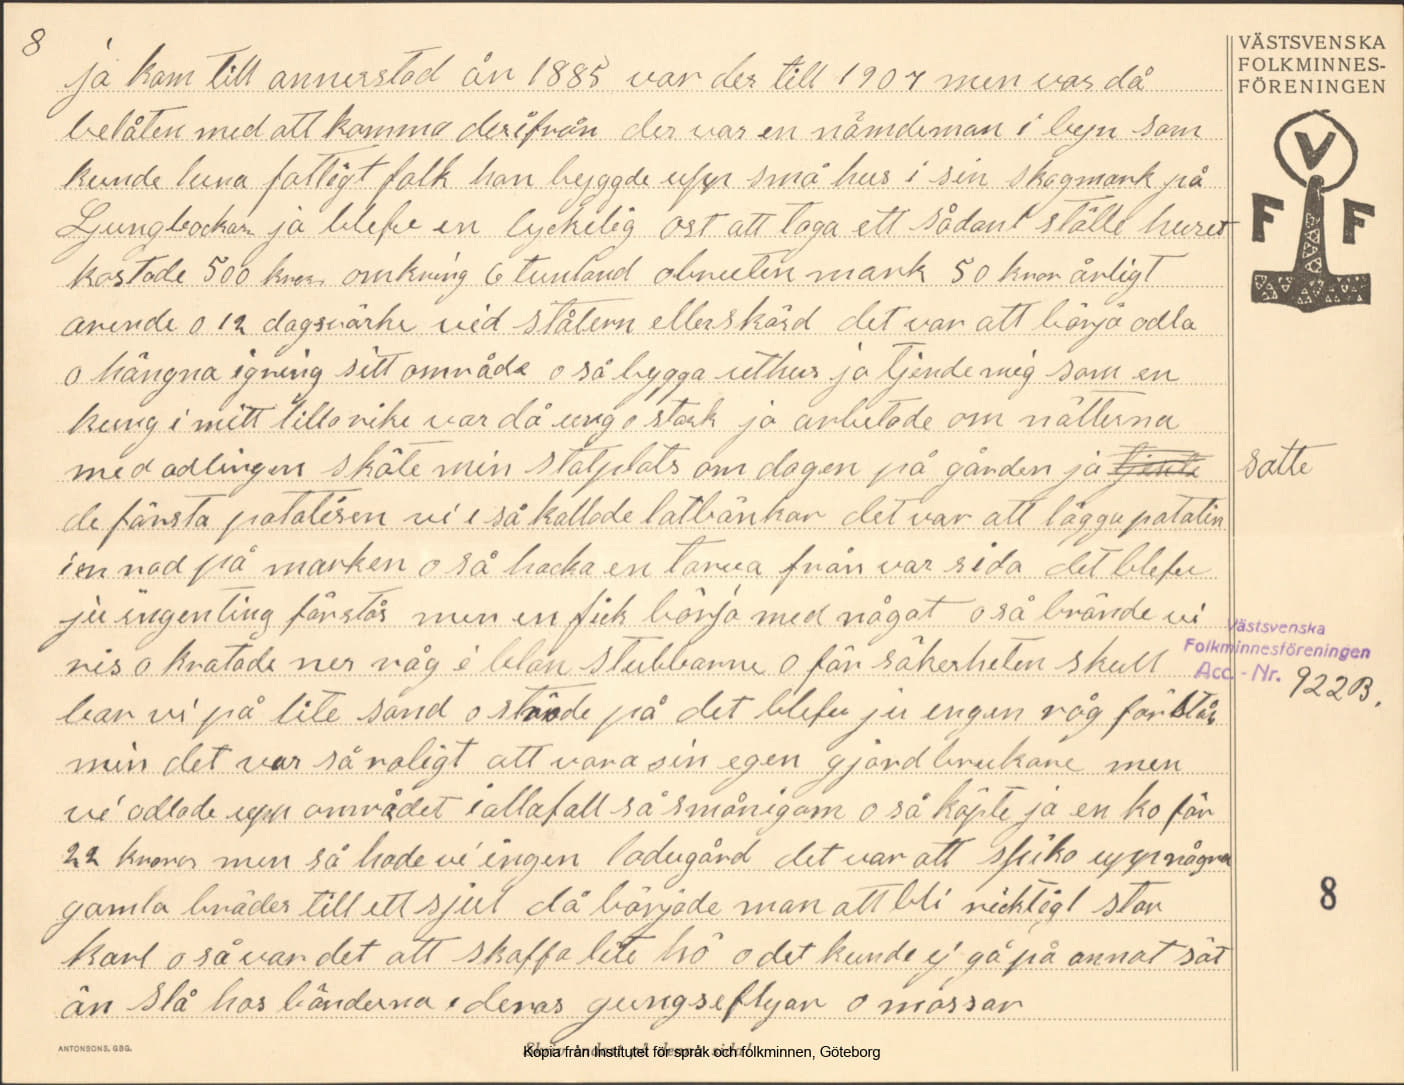 8
VÄSTSVENSKA
FOLKMINNES-
FÖRENINGEN
V
F F
ja kom till annerstad ån 1885 var der till 1907 men var då
belåten med att komma derifrån der var en nämdeman i byn som
kunde luna fattigt folk han byggde upp små hus i sin skogmark på
Ljungbackar ja blefve en lyckelig ost att taga ett sådant ställe huset
kostade 500 kronor omkring 6 tunland obruten mark 50 kronor årligt
arende o 12 dagsvärke vid slåtern eller skörd det var att börja odla
o hängna igring sitt område o så bygga uthus ja tjende mig som en
kung i mitt lilla rike var då ung o stark ja arbetade om nätterna
med odlingen sköte min statplats om dagen på gården ja tjente satte
de första potatisen vi i så kallade latbänkar det var att lägga potatin
i en rad på marken o så hacka en tarva från var sida det blefve
ju ingenting förstås men en fick börja med något o så brände vi
ris o kratade ner råg i blan stubbarne o för säkerheten skull
bar vi på lite sand o ströde på det blefve ju engen råg förstås
min det var så roligt att vara sin egen gjordbrukare men
vi odlade upp området i allafall så småningom o så köpte ja en ko för
22 kronor men så hade vi ingen ladugård det var att spika upp några
gamla bräder till ett sjul då började man att bli ricktigt stor
karl o så var det att skaffa lite hö o det kunde ej gå på annat sät
än slå hos bönderna i deras gungseflyar o mossar
Västsvenska
Folkminnesföreningen
Acc.-Nr. 922B.
8
ANTONSONS, GBG.
Kopia från Institutet för språk och folkminnen, Göteborg